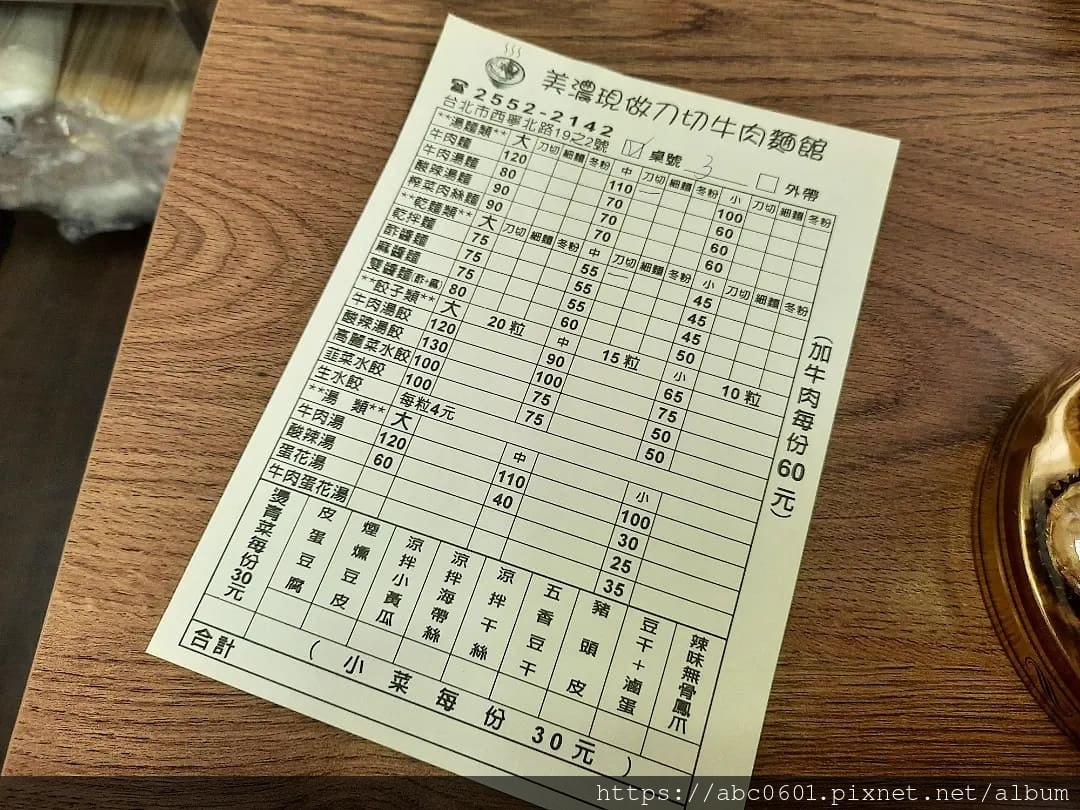 美濃現做刀切牛肉麵館
☎2552-2142
台北市西寧北路19之2號 ☑ 桌號 3 □ 外帶
**湯麵類** 大 刀切 細麵 冬粉 中 刀切 細麵 冬粉 小 刀切 細麵 冬粉
牛肉麵 120 110 100
牛肉湯麵 80 70 60
酸辣湯麵 90 70 60
榨菜肉絲麵 90 70 60
**乾麵類** 大 刀切 細麵 冬粉 中 刀切 細麵 冬粉 小 刀切 細麵 冬粉
乾拌麵 75 55 45
酢醬麵 75 55 45
麻醬麵 75 55 45
雙醬麵(酢、麻) 80 60 50
**餃子類** 大 20粒 中 15粒 小 10粒
牛肉湯餃 120 90 65
酸辣湯餃 130 100 75
高麗菜水餃 100 75 50
韭菜水餃 100 75 50
生水餃 每粒4元
**湯 類** 大 中 小
牛肉湯 120 110 100
酸辣湯 60 40 30
蛋花湯 25
牛肉蛋花湯 35
(加牛肉每份60元)
燙青菜每份30元
皮蛋豆腐
煙燻豆皮
涼拌小黃瓜
涼拌海帶絲
涼拌干絲
五香豆干
豬頭皮
豆干+滷蛋
辣味無骨鳳爪
合計 (小菜每份30元)
https://abc0601.pixnet.net/album